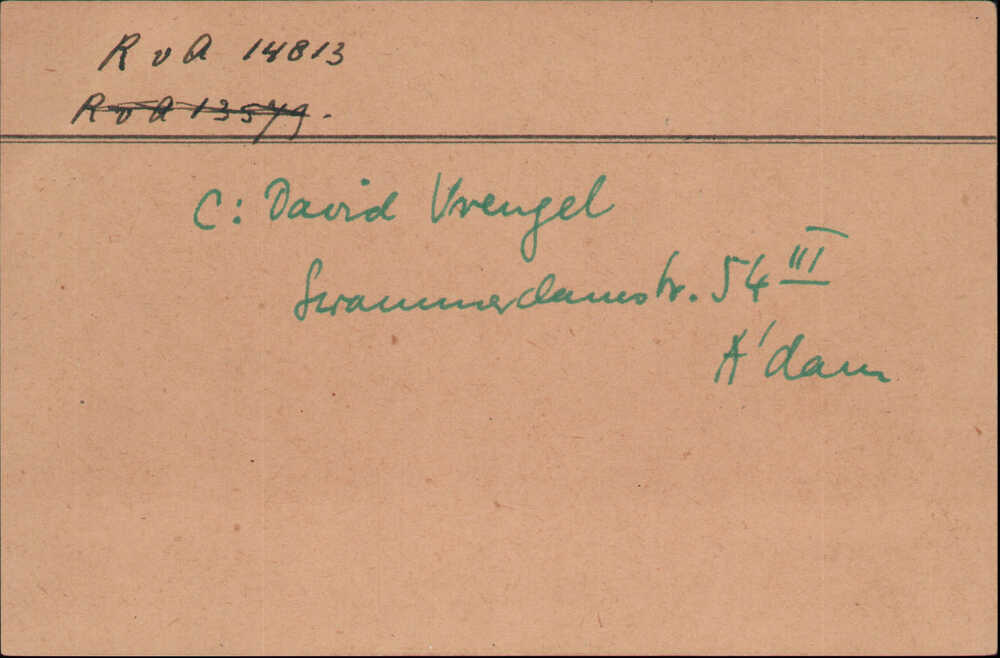 R v A 14813
R v A 13579.
C: David Vrengel
Swammerdamstr. 54 III
A'dam